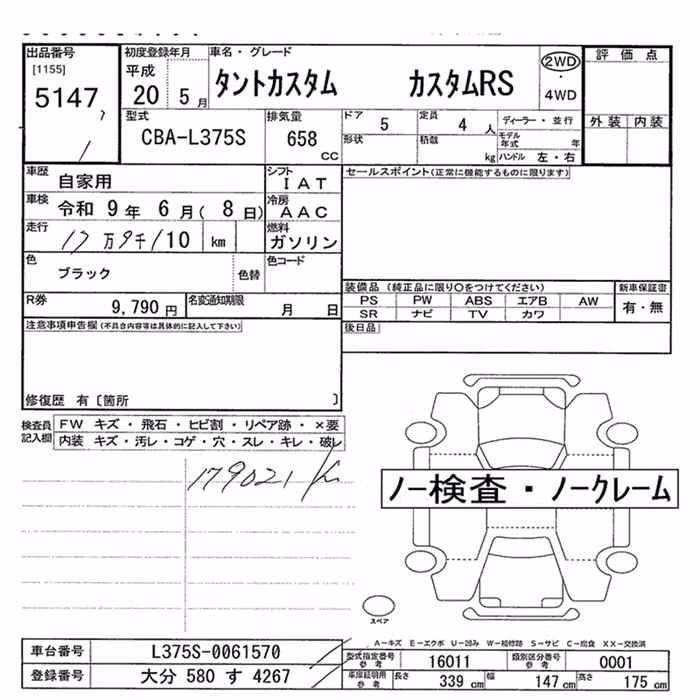 出品番号 初度登録年月 車名・グレード 2WD 評価点
[1155] 平成
5147 20 5月 タントカスタム カスタムRS ・ 4WD
型式 排気量 ドア 5 定員 4人 ディーラー・並行 外装 内装
CBA-L375S 658 cc 形状 積載 kg モデル年式 年
ハンドル 左・右
車歴 自家用 シフト IAT セールスポイント(正常に機能するものに限ります)
車検 令和 9年 6月( 8日) 冷房 AAC
走行 17万9千110 km 燃料 ガソリン
色 ブラック 色替 色コード
装備品 (純正品に限り○をつけてください) 新車保証書
R券 9,790円 名変通知期限 月 日 PS PW ABS エアB AW 有・無
SR ナビ TV カワ
注意事項申告欄(不具合内容等は具体的に記入して下さい) 後日品
修復歴 有〔箇所 〕
検査員記入欄 FW キズ・飛石・ヒビ割・リペア跡・×要
内装 キズ・汚レ・コゲ・穴・スレ・キレ・破レ
179021
ノー検査・ノークレーム
スペア
A-キズ E-エクボ U-凹み W-補修跡 S-サビ C-腐食 XX-交換済
車台番号 L375S-0061570 型式指定番号 参考 16011 類別区分番号 参考 0001
登録番号 大分 580 す 4267 車庫証明用 参考 長さ 339 cm 幅 147 cm 高さ 175 cm